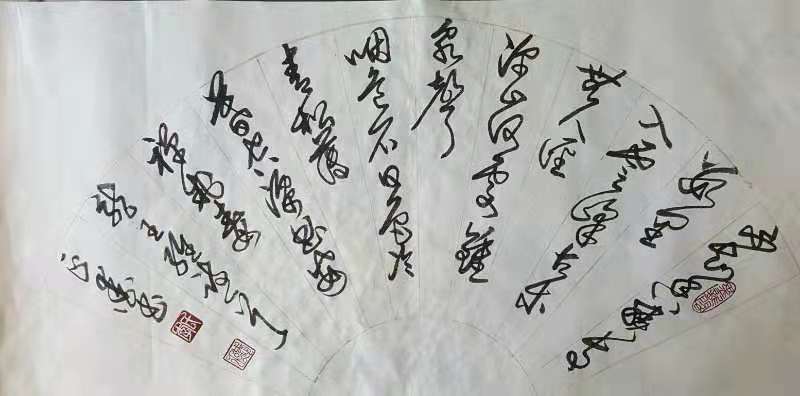 不知香積寺
數里
入雲峰古木
無人徑
深山何處鐘
泉聲
咽危石日色冷
青松薄
暮空潭曲安
禪制毒
龍王維